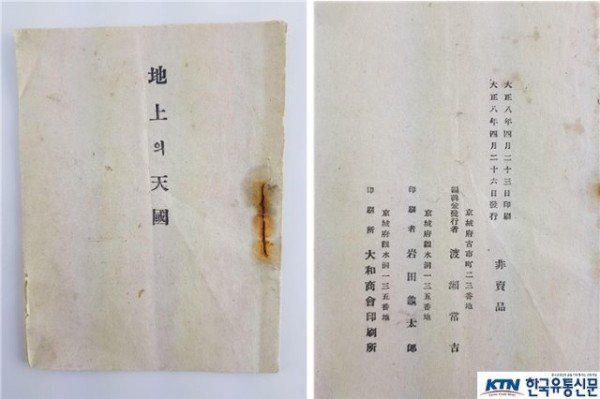 地上의天國
大正八年四月二十三日印刷
大正八年四月二十六日發行
非賣品
京城府古市町二三番地
編輯兼發行者 渡瀨常吉
京城府觀水洞一三五番地
印刷者 岩田 太郎
京城府觀水洞一三五番地
印刷所 大和商會印刷所
KTN 한국유통신문